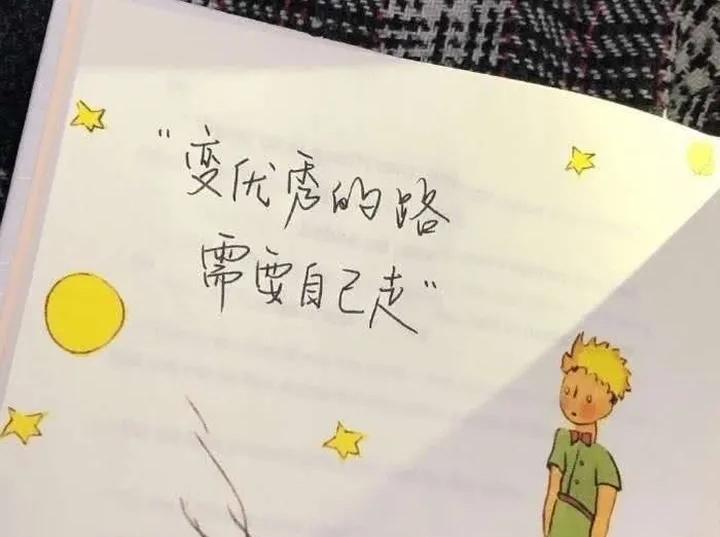 "变优秀的路
需要自己走"